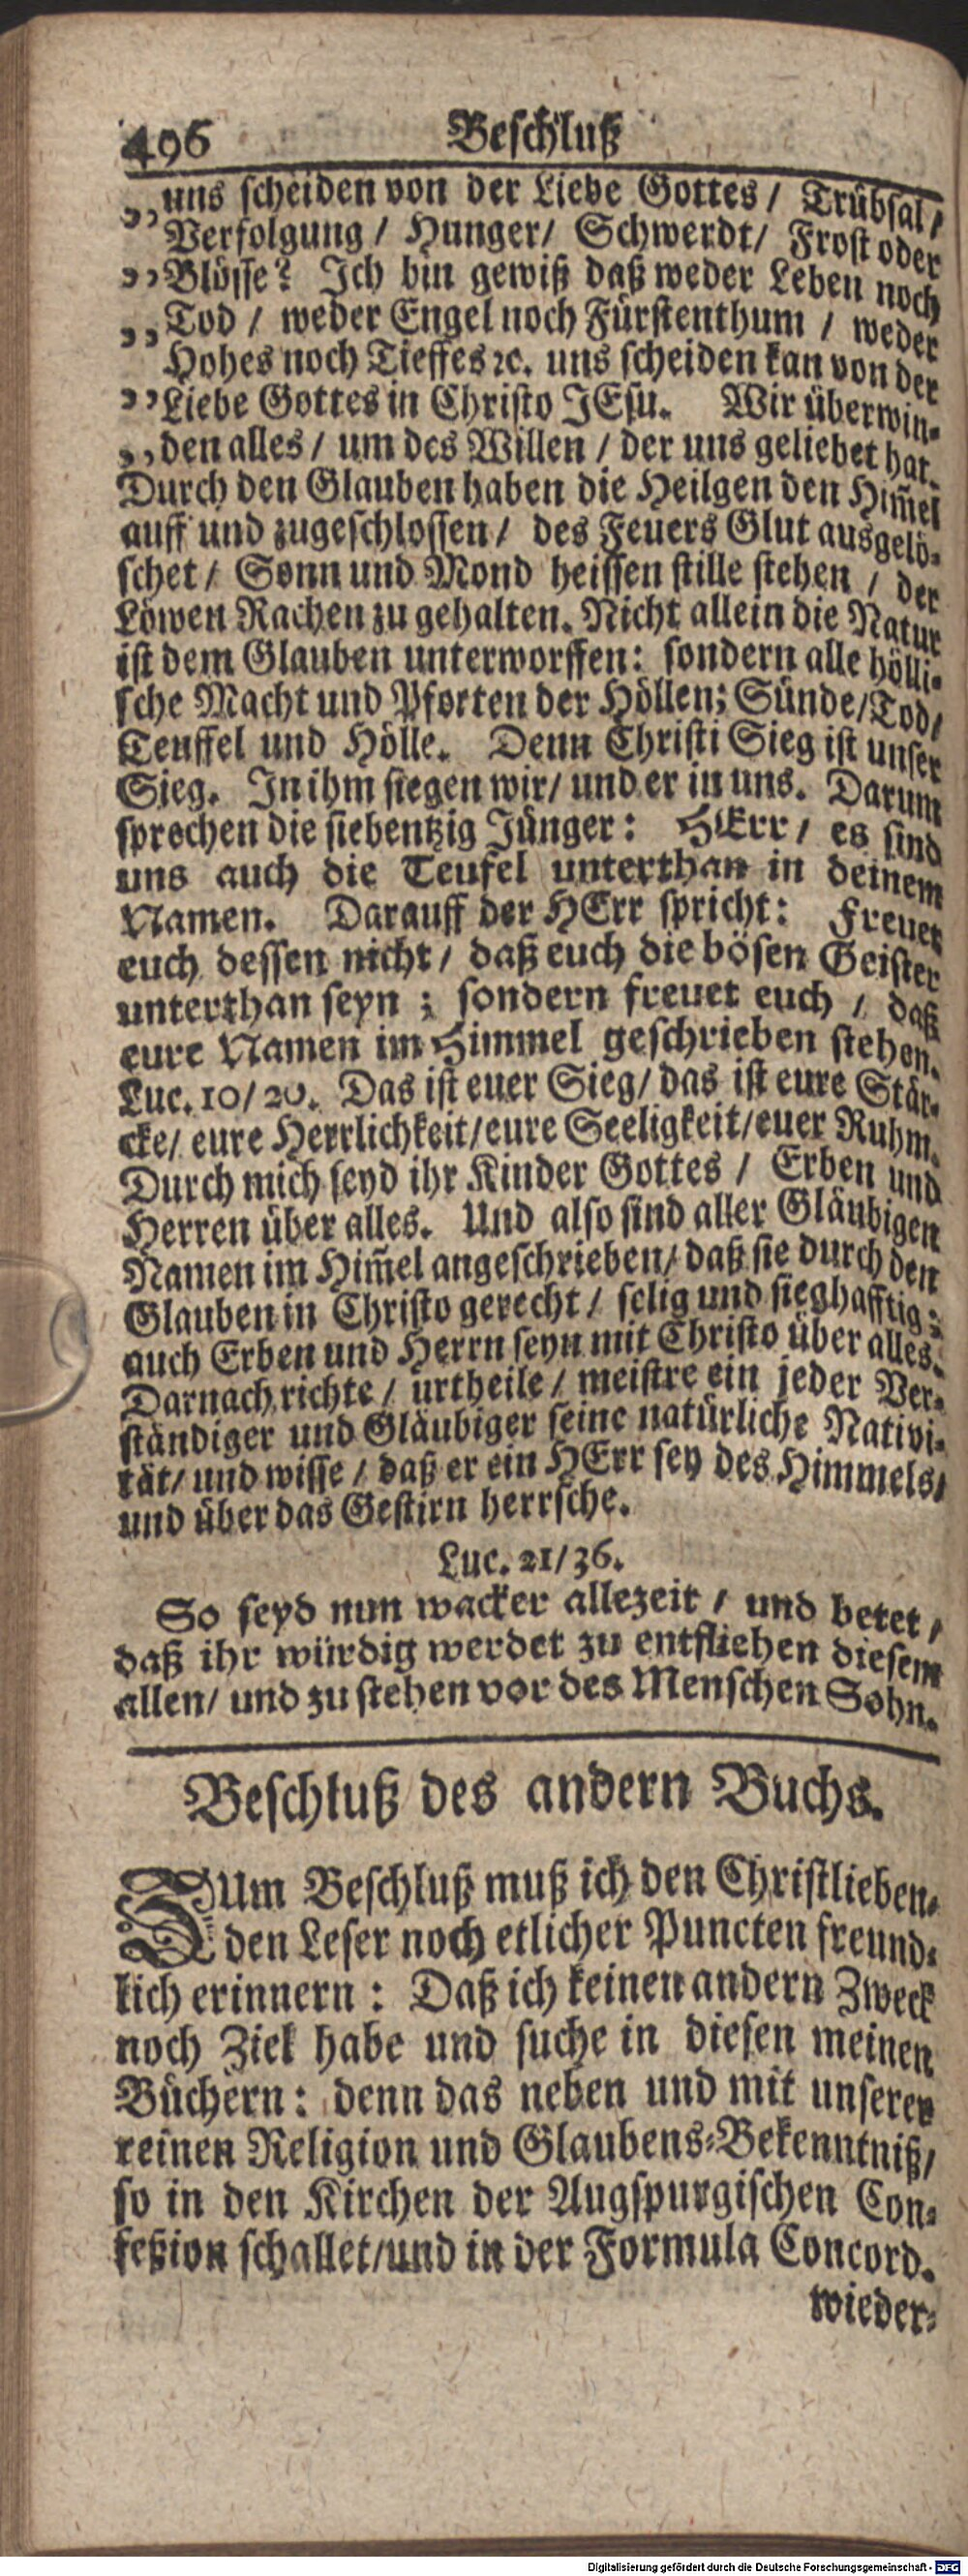 496 Beschluß
„uns scheiden von der Liebe Gottes / Trübsal /
Verfolgung / Hunger / Schwerdt / Frost oder
„Blösse? Ich bin gewiß daß weder Leben noch
„Tod / weder Engel noch Fürstenthum / weder
Hohes noch Tieffes ꝛc. uns scheiden kan von der
„Liebe Gottes in Christo JEsu. Wir überwin-
„den alles / um des Willen / der uns geliebet hat.
Durch den Glauben haben die Heilgen den Him̄el
auff und zugeschlossen / des Feuers Glut ausgelö-
schet / Sonn und Mond heissen stille stehen / der
Löwen Rachen zu gehalten. Nicht allein die Natur
ist dem Glauben unterworffen: sondern alle hölli-
sche Macht und Pforten der Höllen; Sünde / Tod /
Teuffel und Hölle. Denn Christi Sieg ist unser
Sieg. In ihm siegen wir / und er in uns. Darum
sprechen die siebentzig Jünger: HErr / es sind
uns auch die Teufel unterthan in deinem
Namen. Darauff der HErr spricht: Freuet
euch dessen nicht / daß euch die bösen Geister
unterthan seyn; sondern freuet euch / daß
eure Namen im Himmel geschrieben stehen.
Luc. 10 / 20. Das ist euer Sieg / das ist eure Stär-
cke / eure Herrlichkeit / eure Seeligkeit / euer Ruhm.
Durch mich seyd ihr Kinder Gottes / Erben und
Herren über alles. Und also sind aller Gläubigen
Namen im Him̄el angeschrieben / daß sie durch den
Glauben in Christo gerecht / selig und sieghafftig;
auch Erben und Herrn seyn mit Christo über alles.
Darnach richte / urtheile / meistre ein jeder Ver-
ständiger und Gläubiger seine natürliche Nativi-
tät / und wisse / daß er ein HErr sey des Himmels /
und über das Gestirn herrsche.
Luc. 21 / 36.
So seyd nun wacker allezeit / und betet /
daß ihr würdig werdet zu entfliehen diesem
allen / und zu stehen vor des Menschen Sohn.
Beschluß des andern Buchs.
ZUm Beschluß muß ich den Christlieben-
den Leser noch etlicher Puncten freund-
lich erinnern: Daß ich keinen andern Zweck
noch Ziel habe und suche in diesen meinen
Büchern: denn das neben und mit unserer
reinen Religion und Glaubens-Bekenntniß /
so in den Kirchen der Augspurgischen Con-
feßion schallet / und in der Formula Concord.
wieder-
Digitalisierung gefördert durch die Deutsche Forschungsgemeinschaft - DFG